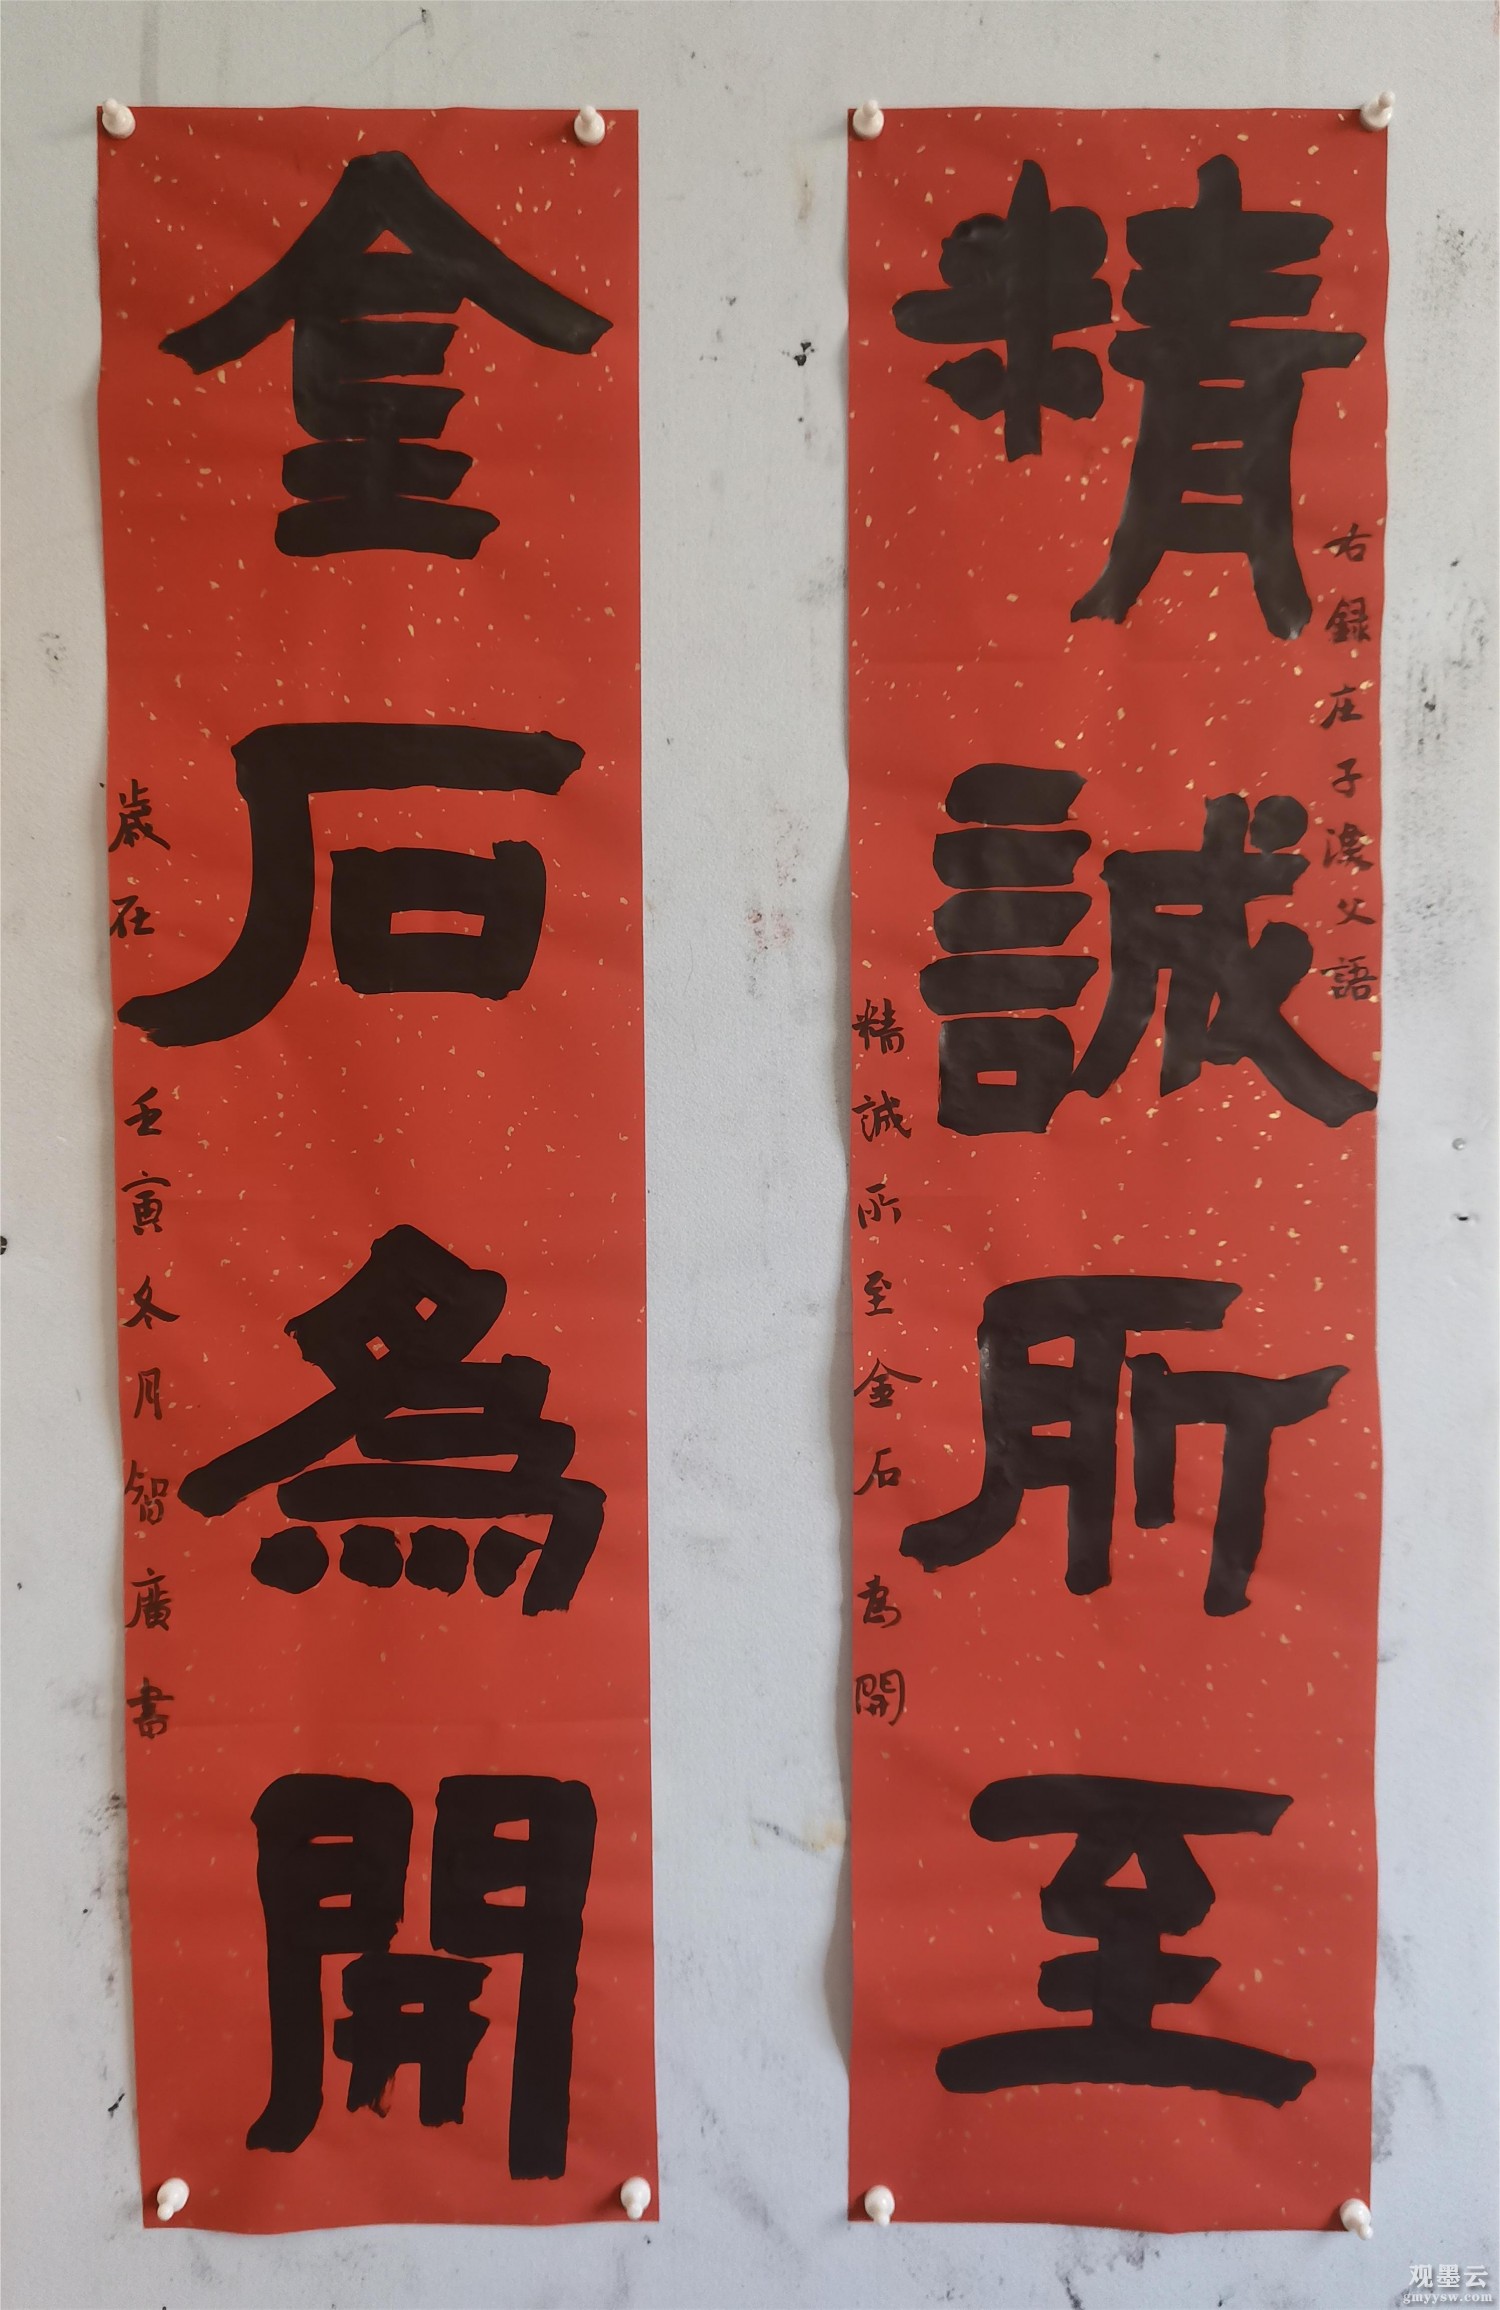 精誠所至
右録庄子漁父語
精誠所至金石為開
金石為開
歲在壬寅冬月智廣書
观墨云
gmyysw.com